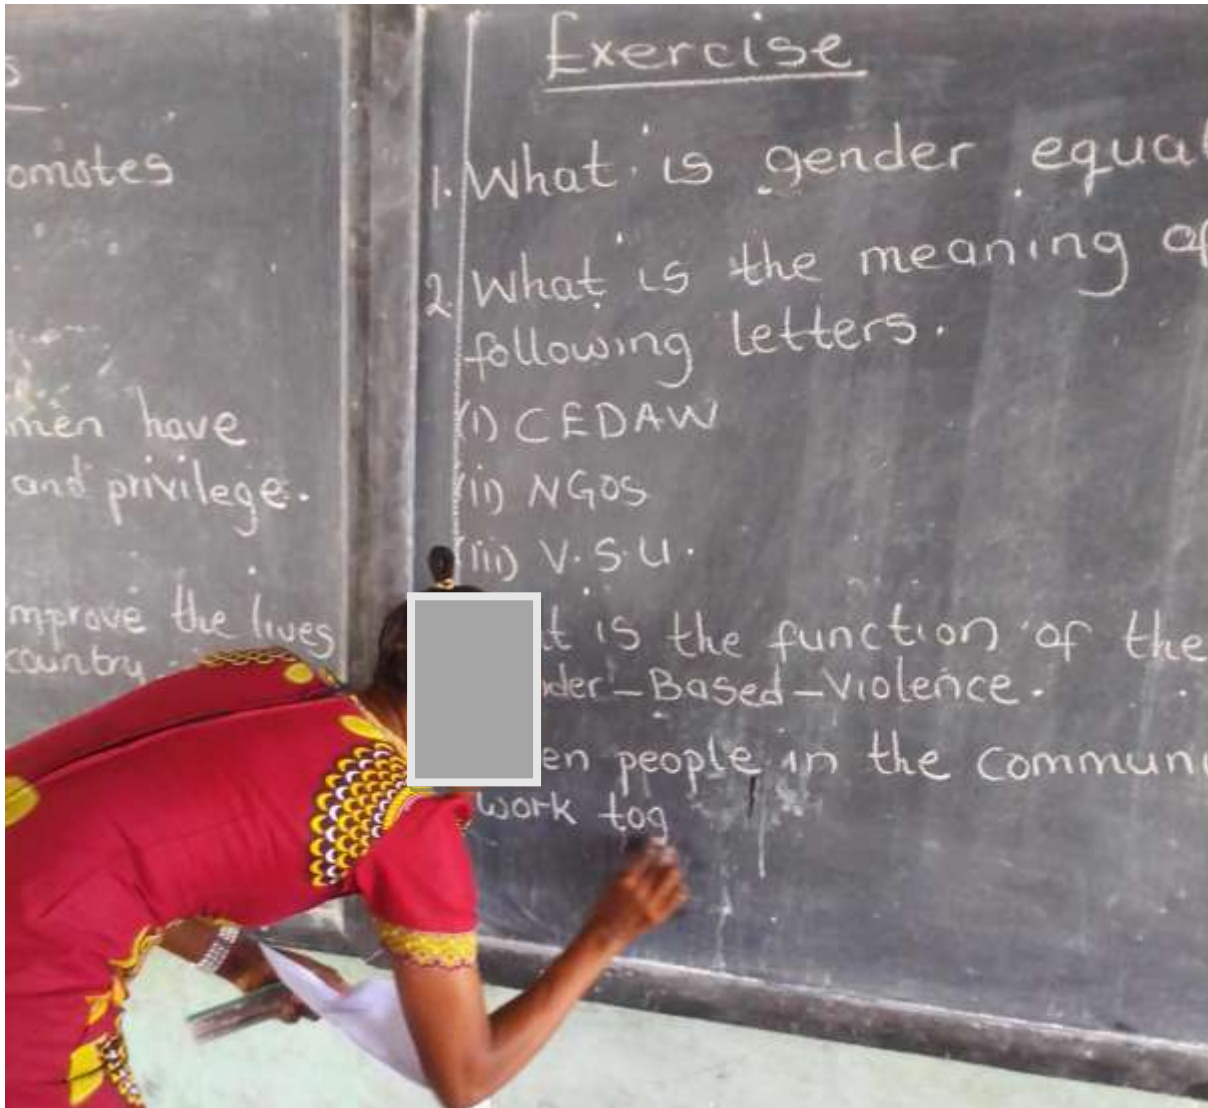 omotes
men have
and privilege.
improve the lives
country.
Exercise
1. What is gender equal
2. What is the meaning of
following letters.
(i) CEDAW
(ii) NGOS
(iii) V.S.U.
is the function of the
-Based-Violence.
people in the commun
work tog